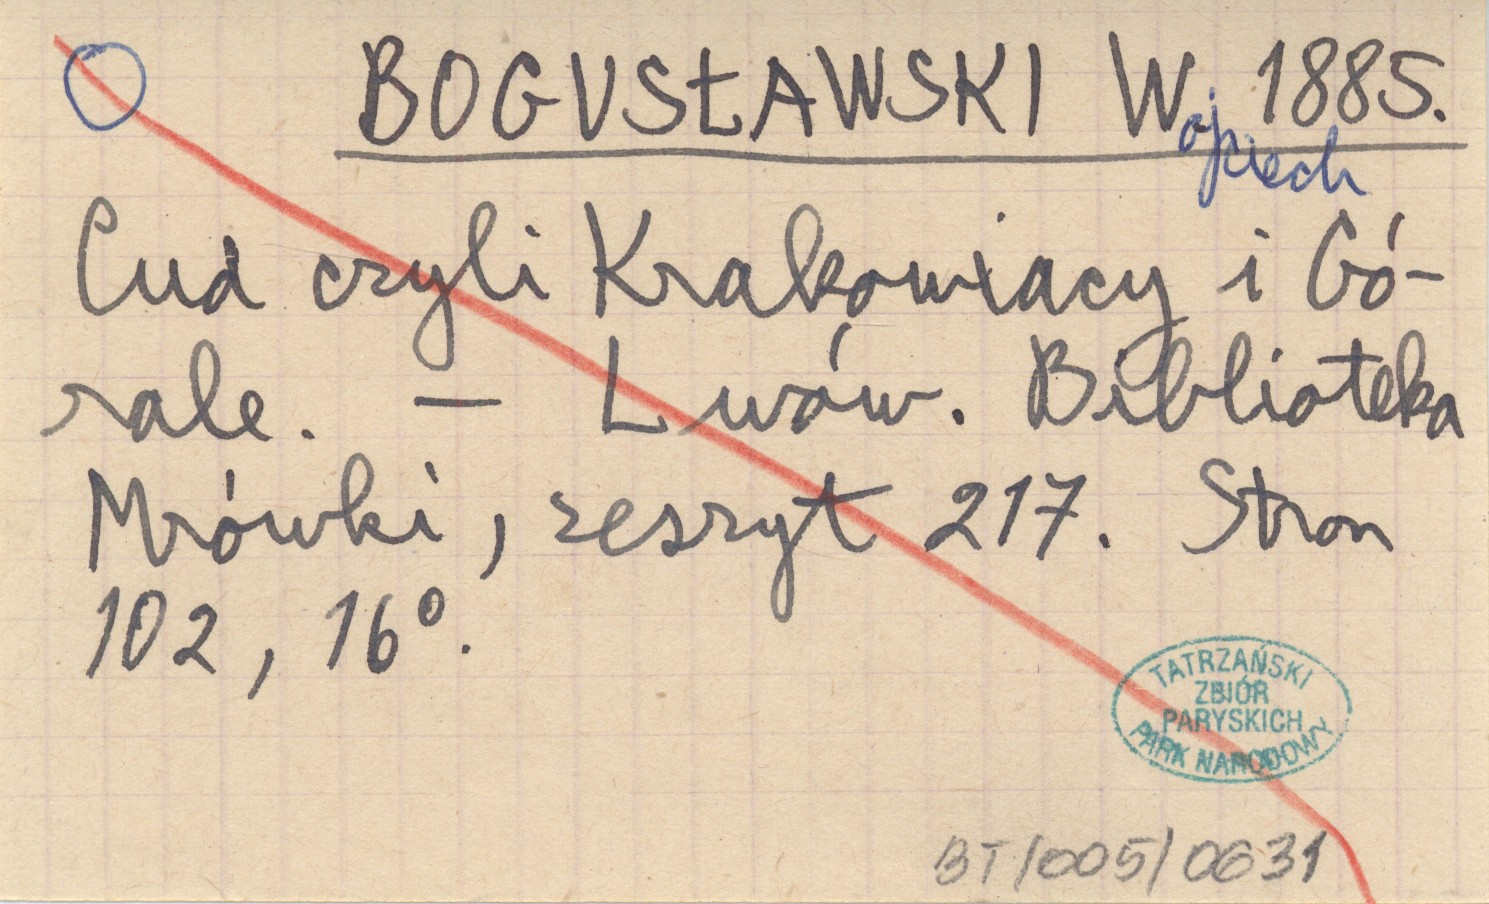 BOGUSŁAWSKI Wojciech 1885.
Cud czyli Krakowiacy i Gó-
rale. — Lwów. Biblioteka
Mrówki, zeszyt 217. Stron
102, 16º.
TATRZAŃSKI
ZBIÓR
PARYSKICH
PARK NARODOWY
BT/005/0631